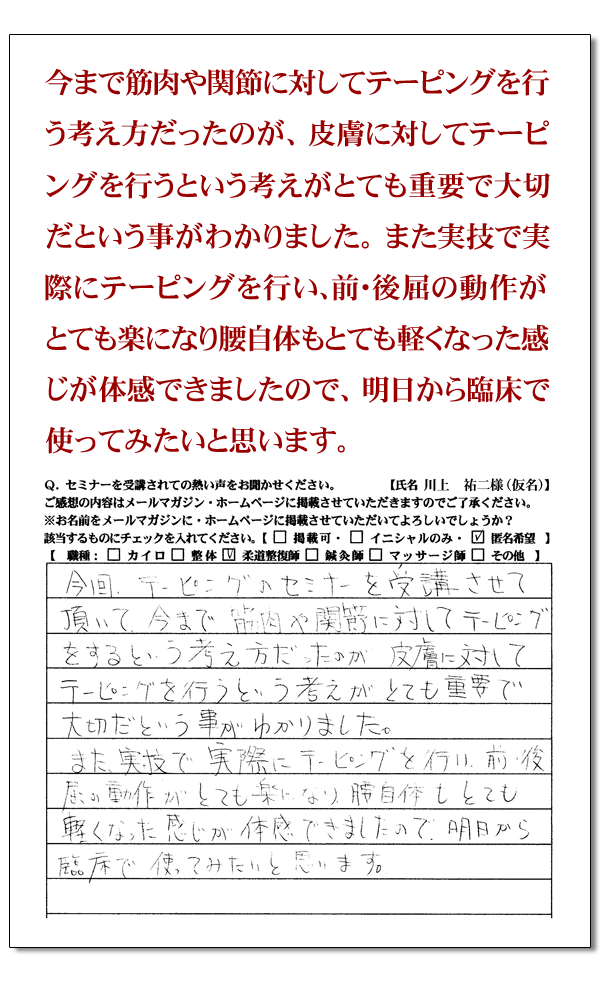 今まで筋肉や関節に対してテーピングを行
う考え方だったのが、皮膚に対してテーピ
ングを行うという考えがとても重要で大切
だという事がわかりました。また実技で実
際にテーピングを行い、前・後屈の動作が
とても楽になり腰自体もとても軽くなった感
じが体感できましたので、明日から臨床で
使ってみたいと思います。
Q．セミナーを受講されての熱い声をお聞かせください。 【氏名 川上 祐二様（仮名）】
ご感想の内容はメールマガジン・ホームページに掲載させていただきますのでご了承ください。
※お名前をメールマガジンに・ホームページに掲載させていただいてよろしいでしょうか？
該当するものにチェックを入れてください。【 □ 掲載可・ □ イニシャルのみ・ ☑ 匿名希望 】
【 職種：□ カイロ □ 整体 ☑ 柔道整復師 □ 鍼灸師 □ マッサージ師 □ その他 】
今回、テーピングのセミナーを受講させて
頂いて、今まで筋肉や関節に対してテーピング
をするという考え方だったのが、皮膚に対して
テーピングを行うという考えがとても重要で
大切だという事がわかりました。
また、実技で実際にテーピングを行い、前・後
屈の動作がとても楽になり、腰自体もとても
軽くなった感じが体感できましたので、明日から
臨床で使ってみたいと思います。